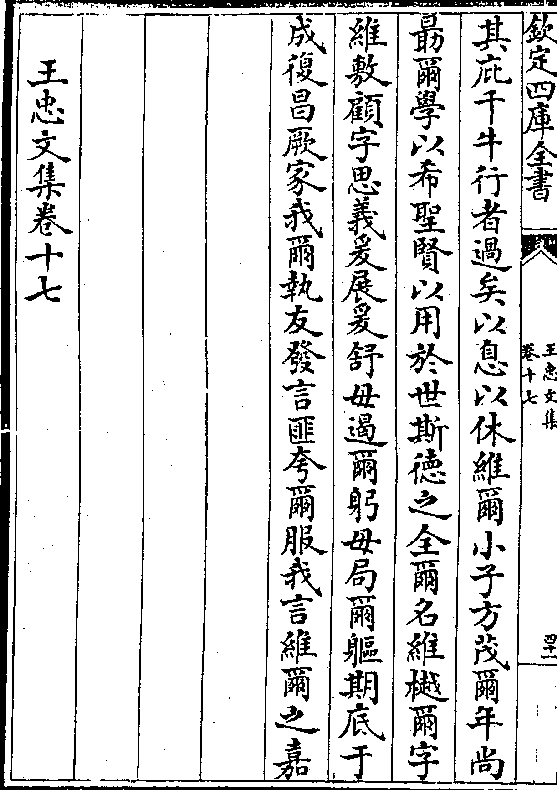 欽定四庫全書
王忠文集
卷十七
四十一
其庇千牛行者過矣以息以休維爾小子方茂爾年尚
勗爾學以希聖賢以用於世斯徳之全爾名維樾爾字
維敷顧字思義爰展爰舒毋遏爾躬毋局爾軀期底于
成復昌厥家我爾執友發言匪夸爾服我言維爾之嘉
王忠文集卷十七